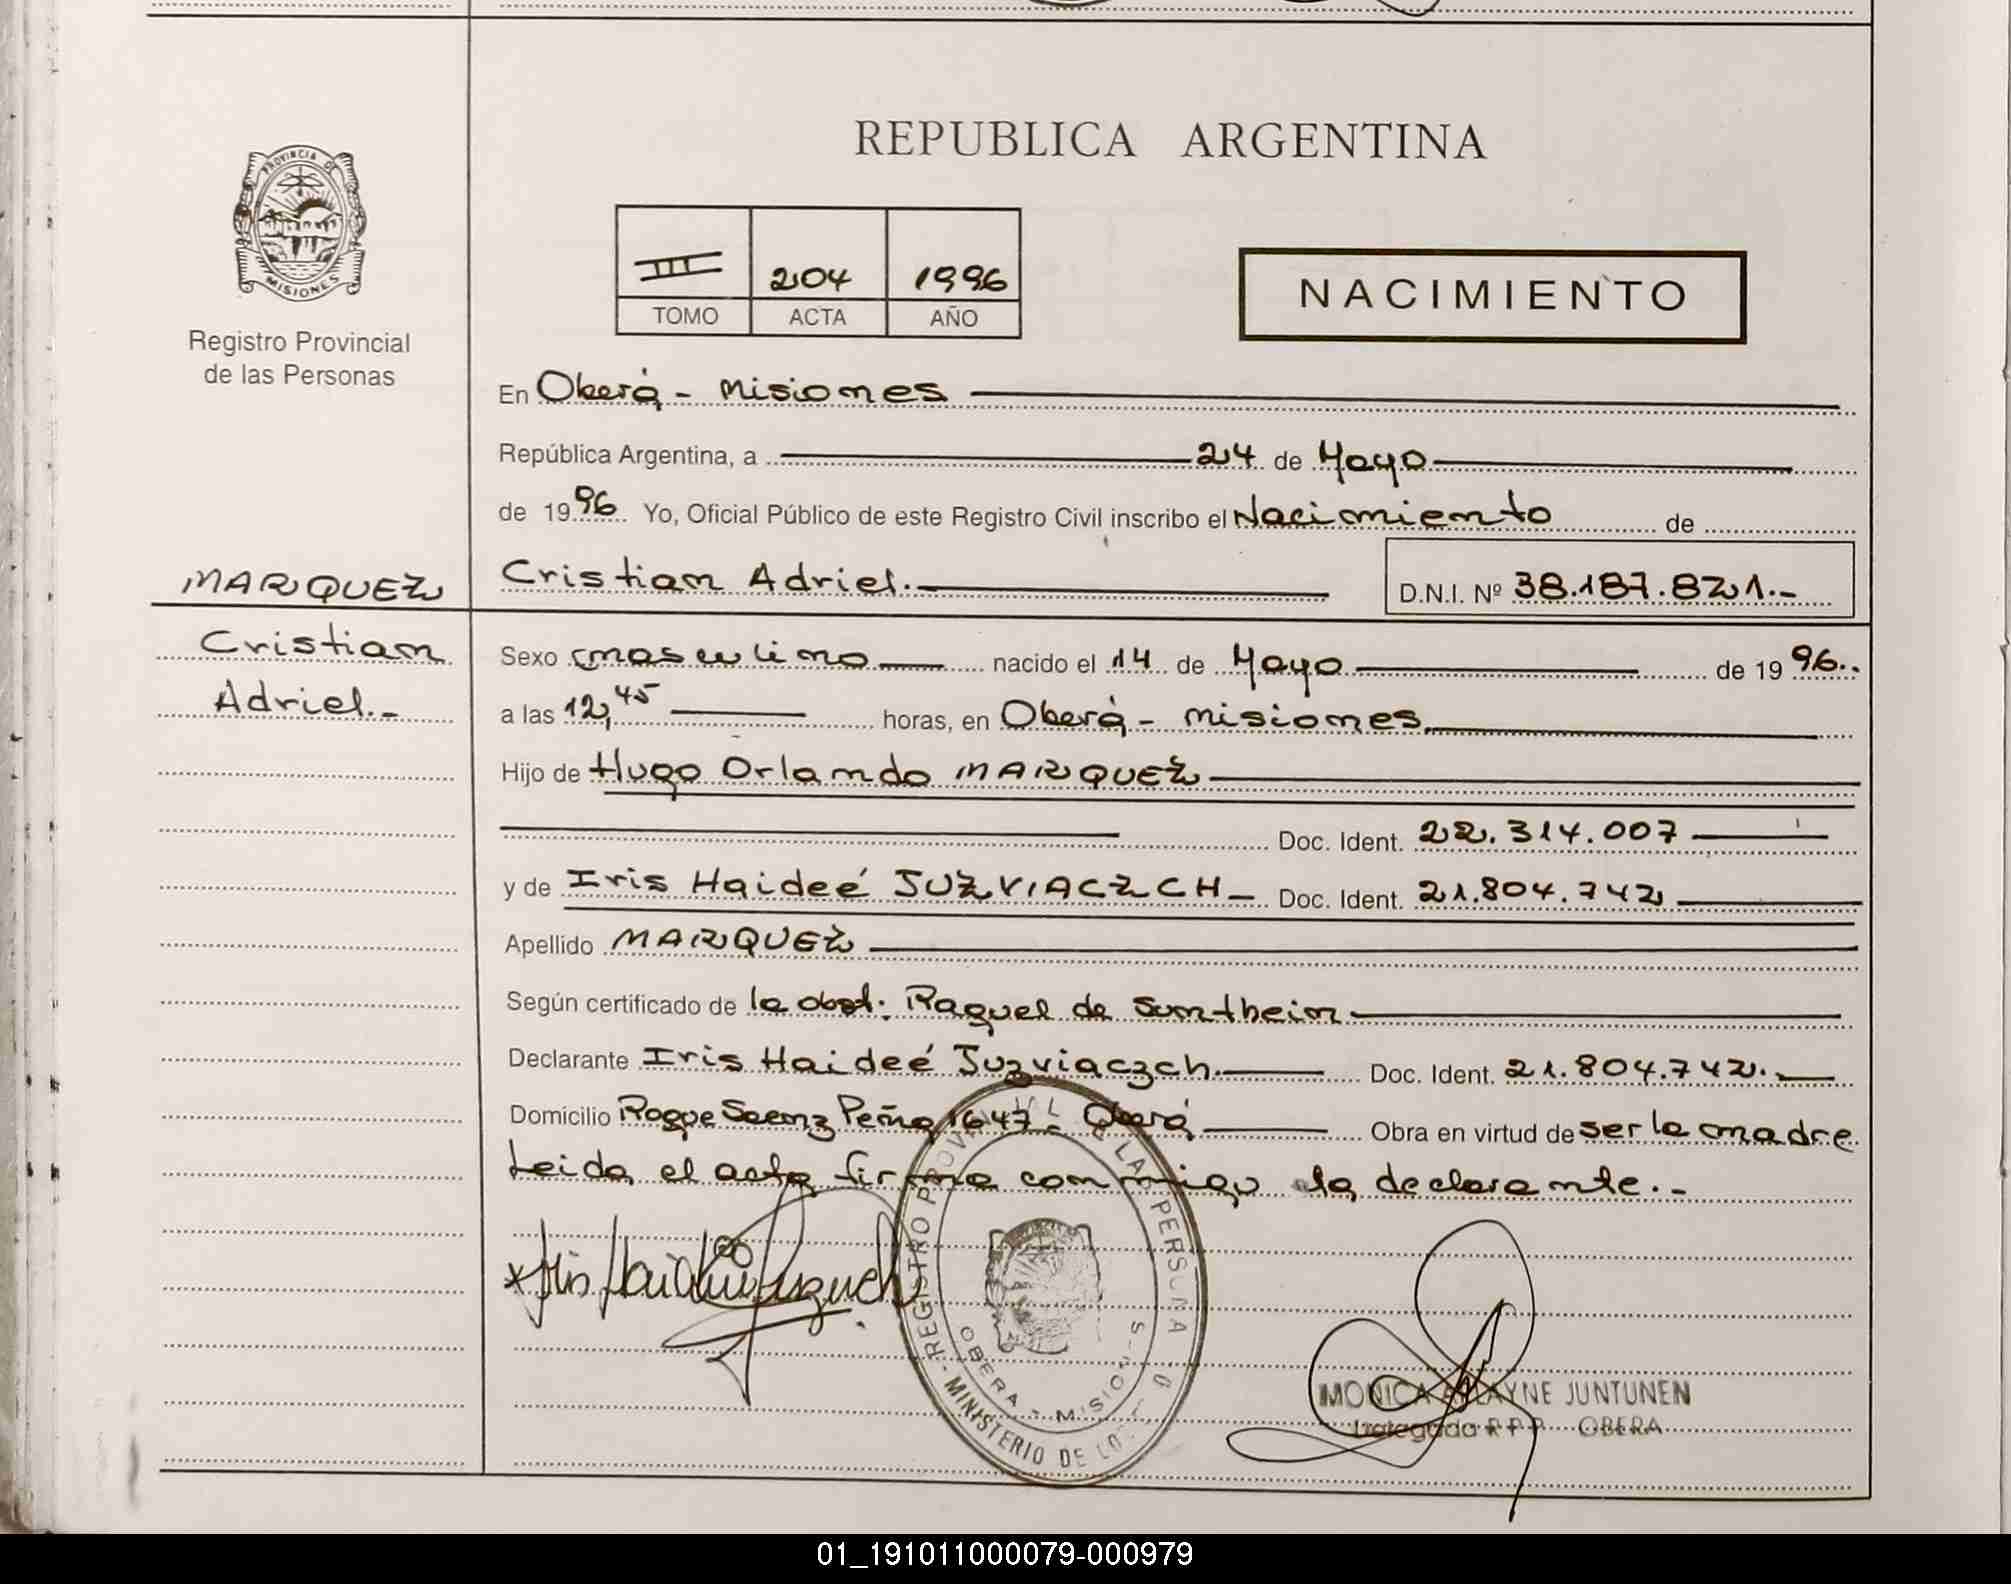 REPUBLICA ARGENTINA
PROVINCIA DE
MISIONES
Registro Provincial
de las Personas
III 204 1996
TOMO ACTA AÑO
NACIMIENTO
En Oberá - Misiones
República Argentina, a 24 de Mayo
de 1996 Yo, Oficial Público de este Registro Civil inscribo el Nacimiento de
MARQUEZ
Cristian Adriel.-
Cristian Adriel. D.N.I. Nº 38.187.821.-
Sexo masculino nacido el 14 de Mayo de 1996..
a las 12,45 horas, en Oberá - Misiones
Hijo de Hugo Orlando MARQUEZ
Doc. Ident. 22.314.007
y de Iris Haideé JUZVIACZCH - Doc. Ident. 21.804.742
Apellido MARQUEZ
Según certificado de la obst. Raquel de Sontheim
Declarante Iris Haideé Juzviaczch. Doc. Ident. 21.804.742.-
Domicilio Roque Saenz Peña 1647 - Oberá Obra en virtud de ser la madre
Leida el acta firma conmigo la declarante.-
REGISTRO PROVINCIAL LA PERSONA
MINISTERIO DE
OBERA - MISIONES
MONICA JUNTUNEN
Delegada R P P OBERA
01_191011000079-000979